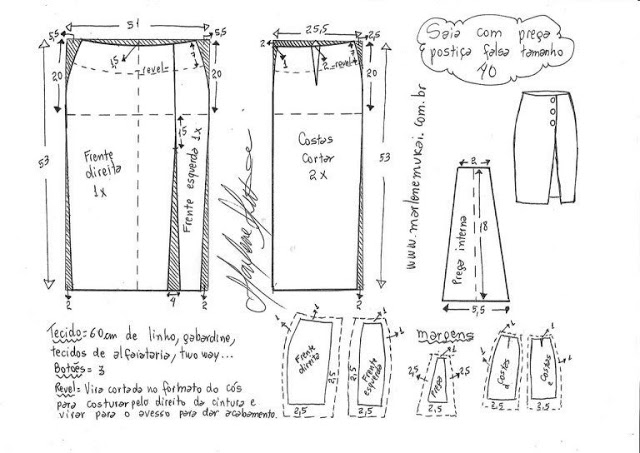 51
5,5
5,5
20
53
1,5
revel
7
20
15
Frente
direita
1x
Frente esquerda 1x
2
4
2
25,5
2
2,5
1
2
7
revel
20
53
Costas
Cortar
2x
2
Saia com prega
postiça falsa tamanho
40
www.marlenemukai.com.br
2
18
Prega interna
5,5
Tecido= 60cm de linho, gabardine,
tecidos de alfaiataria, two way...
Botões= 3
Revel= Vira cortada no formato do cós
para costurar pelo direito da cintura e
virar para o avesso para dar acabamento.
1
1
Frente
direita
2,5
2,5
1
1
Frente
esquerda
2,5
2,5
margens
1
2,5
Prega
2,5
2,5
1
1
Costas
d
2,5
1
1
Costas
e
2,5